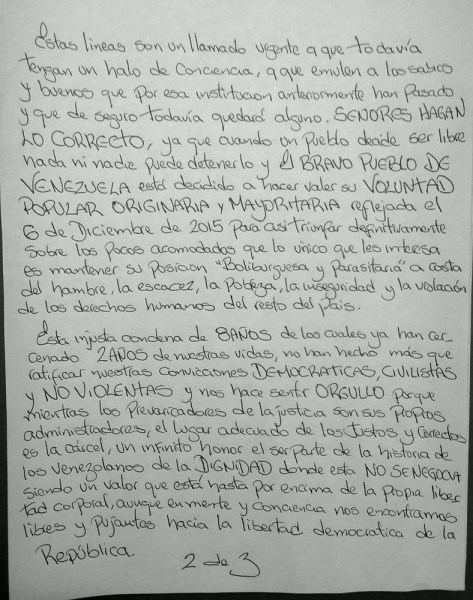 Estas lineas son un llamado urgente a que todavía
tengan un halo de Conciencia, a que emulen a los sabios
y buenos que por esa institucion anteriormente han Pasado
y que de seguro todavía quedará alguno. SEÑORES HAGAN
LO CORRECTO, ya que cuando un Pueblo decide ser libre
nada ni nadie puede detenerlo y él BRAVO PUEBLO DE
VENEZUELA está decidido a hacer valer su VOLUNTAD
POPULAR ORIGINARIA y MAYORITARIA reflejada el
6 de Diciembre de 2015 para asi triunfar definitivamente
sobre los Pocos acomodados que lo unico que les interesa
es mantener su Posicion "Boliburguesa y Parasitaria" a costa
del hambre, la escacez, la Pobeza, la inseguridad y la violación
de los derechos humanos del resto del Pais.
Esta injusta condena de 8 AÑOS de los cuales ya han cer-
cenado 2 AÑOS de nuestras vidas, no han hecho más que
ratificar nuestras convicciones DEMOCRATICAS, CIVILISTAS
y NO VIOLENTAS y nos hace sentir ORGULLO Porque
mientras los Prevaricadores de la justicia son sus Propios
administradores, el lugar adecuado de los Justos y Correctos
es la cárcel, un infinito honor el ser parte de la historia de
los Venezolanos de la DIGNIDAD donde esta NO SE NEGOCIA
siendo un valor que está hasta por encima de la Propia liber
tad corporal, aunque en mente y conciencia nos encontramos
libres y Pujantes hacia la libertad democratica de la
República.
2 de 3